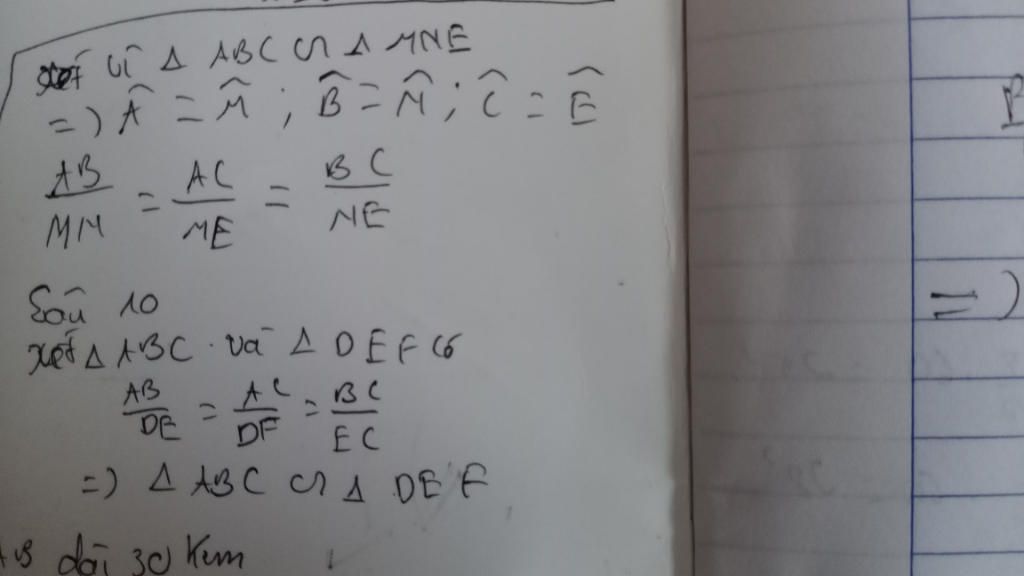 Vì Δ ABC ∽ Δ MNE
=> Â = M̂ ; B̂ = M̂ ; Ĉ = Ê
AB/MN = AC/ME = BC/NE
Câu 10
xét Δ ABC và Δ DEF có
AB/DE = AC/DF = BC/EC
=> Δ ABC ∽ Δ DEF
AB dài 30 km
=>